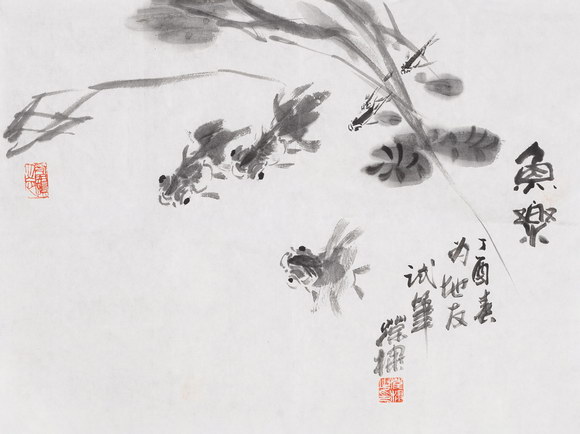 魚樂
丁酉春
为地友
试筆
榮